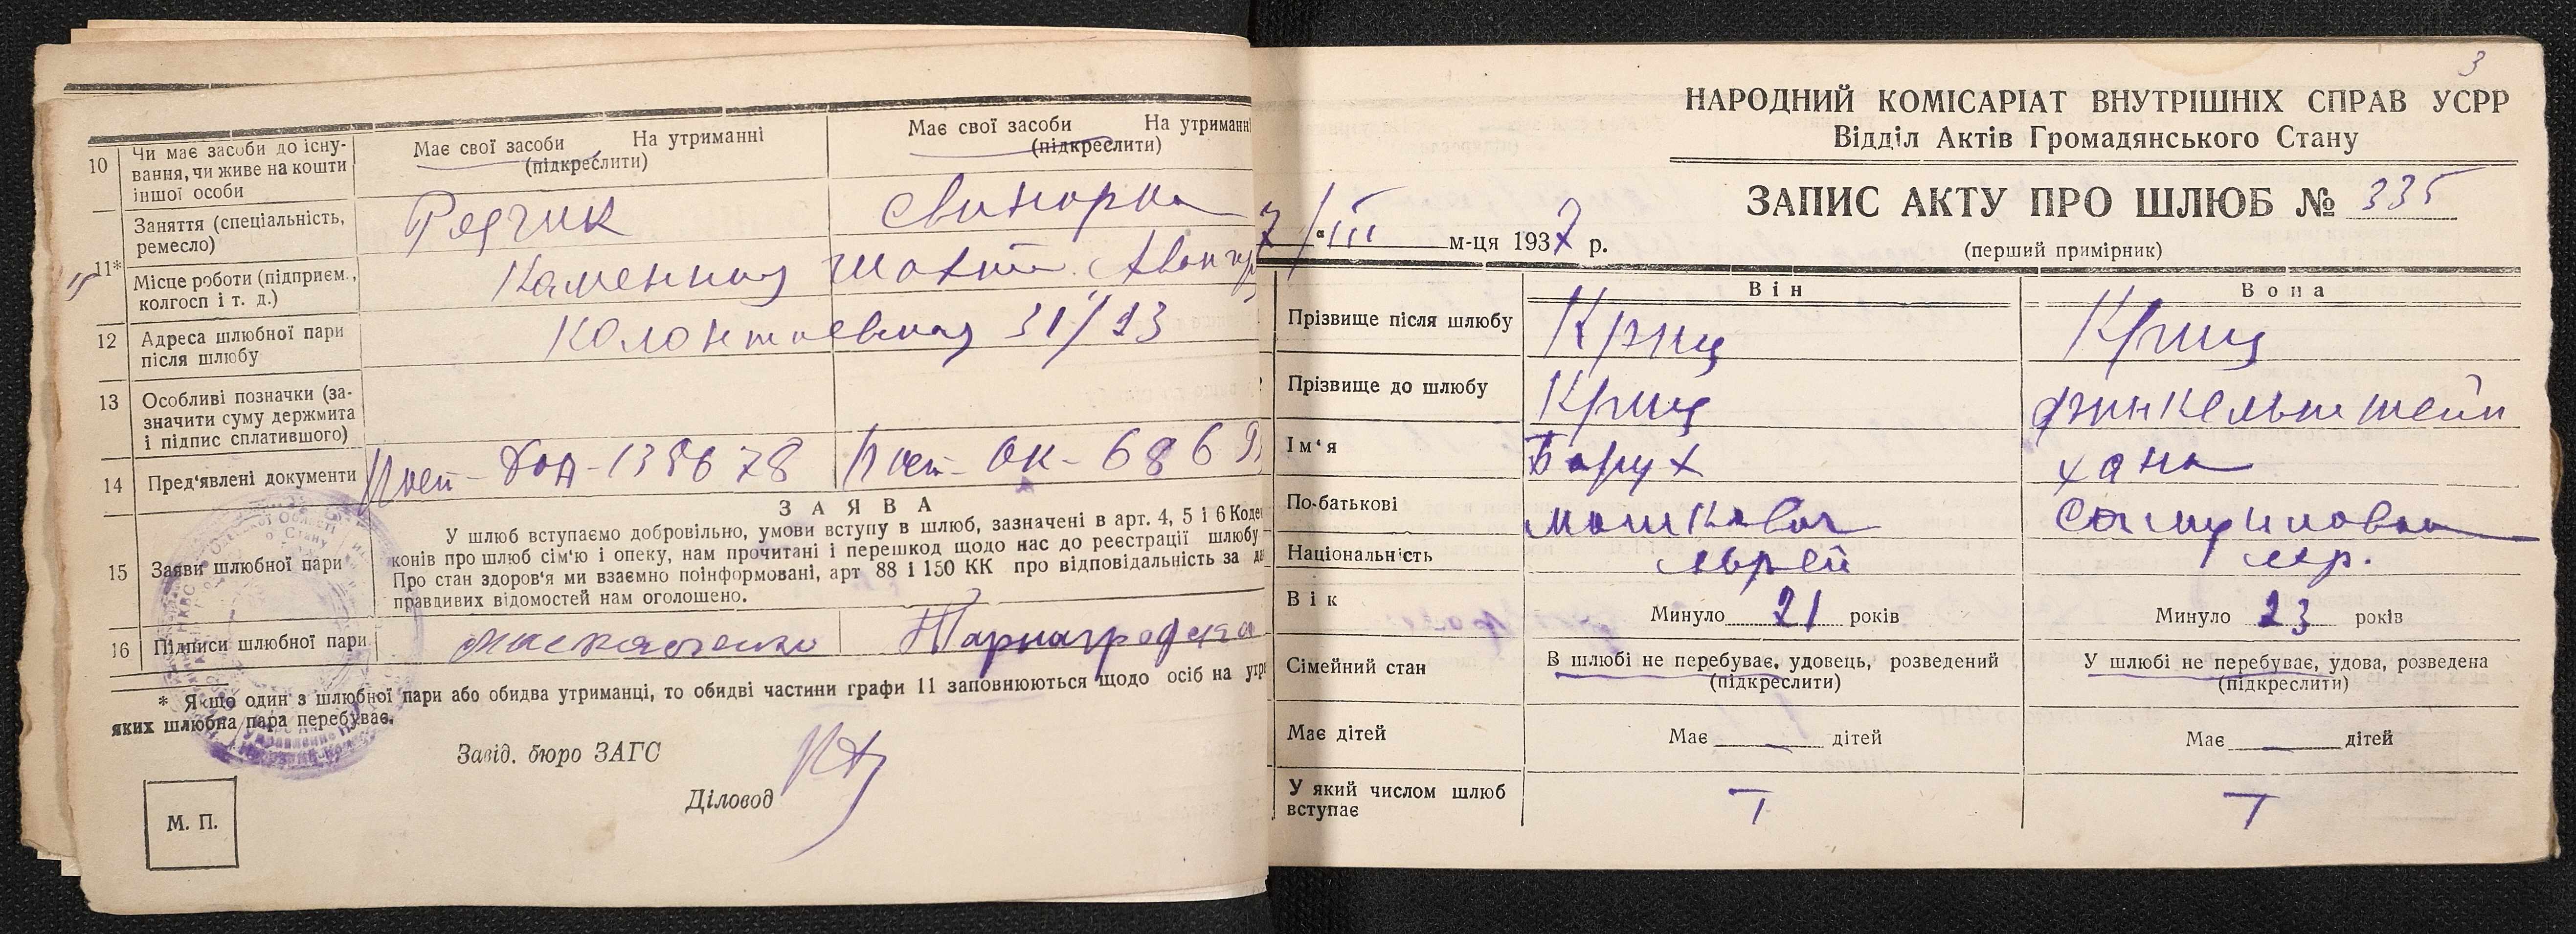 10 Чи має засоби до існу-
вання, чи живе на кошти
іншої особи
Має свої засоби На утриманні
(підкреслити)
Має свої засоби На утриманн
(підкреслити)
11* Заняття (спеціальність,
ремесло)
Місце роботи (підприєм.,
колгосп і т. д.)
12 Адреса шлюбної пари
після шлюбу
31/23
13 Особливі позначки (за-
значити суму держмита
і підпис сплатившого)
14 Пред'явлені документи
ЗАЯВА
15 Заяви шлюбної пари
У шлюб вступаємо добровільно, умови вступу в шлюб, зазначені в арт. 4, 5 і 6 Коде
конів про шлюб сім'ю і опеку, нам прочитані і перешкод щодо нас до реєстрації шлюбу
Про стан здоров'я ми взаємно поінформовані, арт 88 і 150 КК про відповідальність за
правдивих відомостей нам оголошено.
16 Підписи шлюбної пари
* Якщо один з шлюбної пари або обидва утриманці, то обидві частини графи 11 заповнюються щодо осіб на утр
яких шлюбна пара перебуває.
Завід. бюро ЗАГС
Діловод
М. П.
3
НАРОДНИЙ КОМІСАРІАТ ВНУТРІШНІХ СПРАВ УСРР
Відділ Актів Громадянського Стану
ЗАПИС АКТУ ПРО ШЛЮБ № 335
(перший примірник)
7/III м-ця 1937 р.
Він Вона
Прізвище після шлюбу Криц Криц
Прізвище до шлюбу Криц Финкельштейн
Ім'я Борух Хана
По-батькові Мошкович
Національність еврей евр.
Вік Минуло 21 років Минуло 23 років
Сімейний стан В шлюбі не перебуває, удовець, розведений У шлюбі не перебуває, удова, розведена
(підкреслити) (підкреслити)
Має дітей Має — дітей Має — дітей
У який числом шлюб I I
вступає